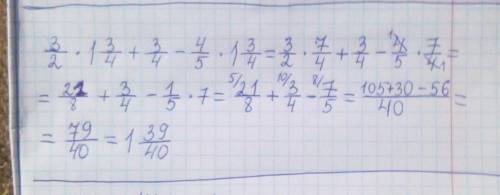 3/2 · 1 3/4 + 3/4 − 4/5 · 1 3/4 = 3/2 · 7/4 + 3/4 − ¹4/5 · 7/4₁ =
= 21/8 + 3/4 − 1/5 · 7 = ⁵⁾21/8 + ¹⁰⁾3/4 − ⁸⁾7/5 = (105+30−56)/40 =
= 79/40 = 1 39/40